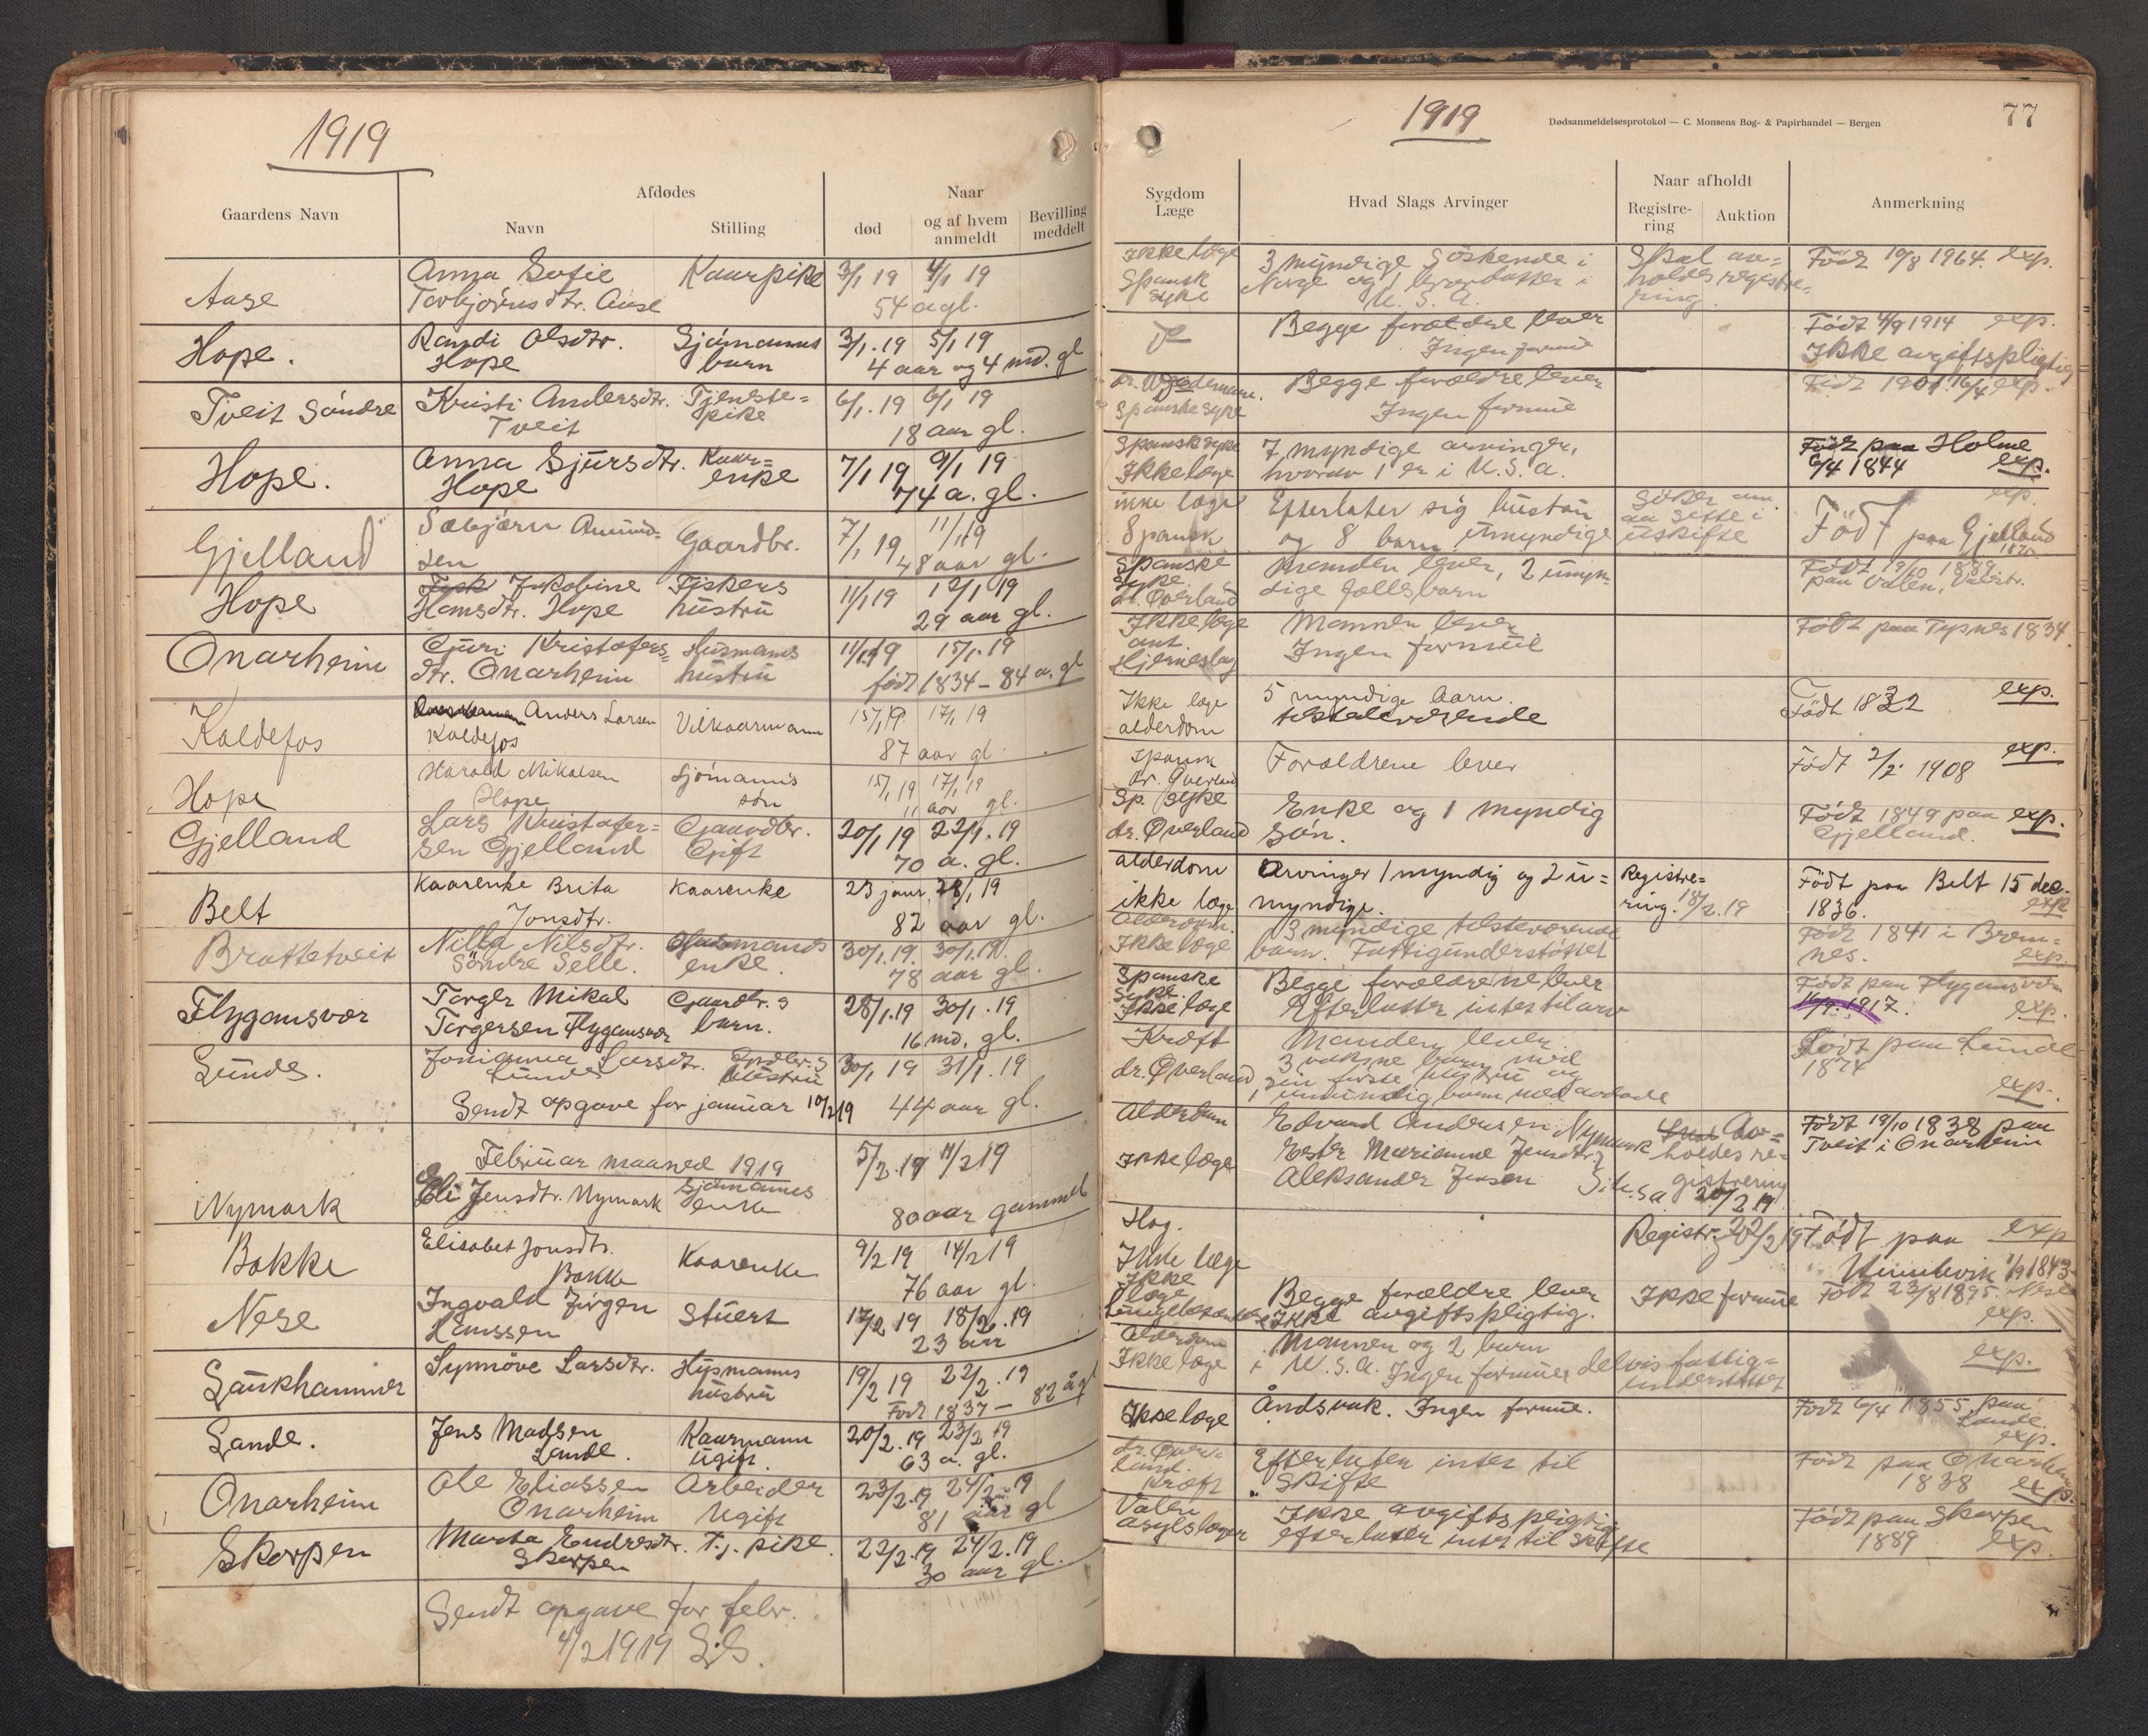 1919
Gaardens Navn
Afdødes
Navn
Stilling
Naar
død
og af hvem anmeldt
Bevilling meddelt
Aase
Anna Sofie
Torbjörnsdtr. Aase
Kaarpike
3/1 19 4/1 19
54 a gl.
Hope.
Randi Olsdtr.
Hope
Sjömanns
barn
3/1.19 5/1 19
4 aar og 4 md. gl
Tveit Söndre
Kristi Andersdtr.
Tveit
Tjenste=
pike
6/1.19 6/1 19
18 aar gl.
Hope.
Anna Sjursdtr.
Hope
Kaar=
enke
7/1 19 9/1 19
74 a. gl.
Gjelland
Sæbjørn Amund-
sen
Gaardbr.
7/1 19 11/1 19
48 aar gl.
Hope
Jakobine
Hansdtr. Hope
Fiskers
hustru
11/1 19 12/1 19
29 aar gl.
Onarheim
Guri Kristofers=
dtr. Onarheim
Husmanns
hustru
11/1 19 15/1.19
født 1834 - 84 a. gl
Koldefos
Anders Larsen
Koldefos
Vilkaarmann
15/1 19. 17/1 19
87 aar gl.
Hope
Harald Mikalsen
Hope
Sjömanns
sön
15/1 19 17/1 19
11 aar gl.
Gjelland
Lars Kristofer=
sen Gjelland
Gaardbr.
Gift
20/1 19 22/1.19
70 a. gl.
Belt
Kaarenke Brita
Jonsdtr.
Kaarenke
23 januar 28/1 19
82 aar gl.
Brattetveit
Nilla Nilsdtr.
Söndre Selle.
Husmands
enke.
30/1.19. 30/1.19.
78 aar gl.
Flygansvær
Torger Mikal
Torgersen Flygansvær
Gaardbr. s
barn.
28/1.19 30/1.19
16 md. gl.
Lunde.
Jonianna Larsdtr.
Lunde
Grdbr.s
hustru
30/1 19 31/1.19
Sendt opgave for januar 10/2 19
44 aar gl.
Februar maaned 1919
5/2.19 11/2 19
Nymark
Eli Jensdtr. Nymark
Sjömanns
enke
80 aar gammel
Bakke
Elisabet Jonsdtr.
Bakke
Kaarenke
9/2 19 14/2 19
76 aar gl.
Nese
Ingvald Jörgen
Hanssen
Stuert
17/2 19 18/2.19
23 aar
Laukhammer
Synnöve Larsdtr.
Husmanns
hustru
19/2 19 22/2.19
Født 1837 - 82 å gl
Lande.
Jens Madsen
Lande.
Kaarmann
Ugift.
20/2.19 23/2 19
63 a. gl.
Onarheim
Ole Eliassen
Onarheim
Arbeider
Ugift
23/2.19 24/2.19
81 aar gl
Skorpen
Marta Endresdtr.
Skorpen
Tj. pike.
22/2.19 24/2.19
30 aar gl.
Sendt opgave for febr.
4/2 1919 L.S.
1919
Dødsanmeldelsesprotokol — C. Monsens Bog- & Papirhandel — Bergen
77
Sygdom
Læge
Hvad Slags Arvinger
Naar afholdt
Registre-
ring
Auktion
Anmerkning
Ikke læge
Spansk
syke
3 myndige Söskende i
Norge og 1 brordatter i
U. S. A.
Skal av=
holdes registre=
ring
Födt 10/8 1964. exp.
Do
Begge forældre lever
Ingen formue
Födt 4/9 1914 exp.
Ikke avgiftspligtig
dr. Wedemann.
Spanske syke
Begge forældre lever
Ingen formue
Födt 1901. 16/4 exp.
Spansk syke
Ikke læge
7 myndige arvinger,
hvorav 1 er i U.S.A.
Födt paa Holme
6/4 1844 exp.
ikke læge
Spansk
Efterlater sig hustru
og 8 barn umyndige
Söker om
aa sitte i
uskifte
exp.
Födt paa Gjelland
Spanske
syke.
dr. Øverland
Manden lever, 2 umyn-
dige fellesbarn
Födt 19/10 1889
paa Valen,
Ikke læge
ant.
Hjerneslag
Mannen lever
Ingen formue
Födt paa Tysnes 1834
Ikke læge
alderdom
5 myndige barn.
tilstedeværende
Födt 1832 exp.
Spansk
dr. Øverland
Forældrene lever
Födt 2/2. 1908 exp.
Sp. syke
dr. Øverland
Enke og 1 myndig
Sön.
Födt 1849 paa exp.
Gjelland.
alderdom
ikke læge
Arvinger 1 myndig og 2 u=
myndige.
Registre=
ring. 18/2.19
Födt paa Belt 15 dec.
1836. exp
Alderdom.
Ikke læge
3 myndige tilsteværende
barn. Fattigunderstøttet
Födt 1841 i Brem=
nes. exp.
Spanske
Syke.
Ikke læge
Begge forældrene lever
Efterlater intet til arv
Födt paa Flygansvær
16/9.1917. exp.
Kræft
dr. Øverland
Manden lever
3 voksne barn med
sin første hustru og
1 umyndig barn med avdøde
Födt paa Lunde
1874
exp.
Alderdom
Ikke læge
Edvard Andersen Nymark
Ester Marianne Jensdtr.
Aleksander Jensen i U.S.A.
Av=
holdes re=
gistrering
20/2 19
Födt 19/10 1838 paa
Tveit i Onarheim
Ikke læge
Registr. 22/2 19
Födt paa exp
1/9 1843
Ikke
læge
Begge forældre lever
Ikke avgiftspligtig.
Ikke formue
Födt 23/8 1895. Nese
exp.
Alderdom
Ikke læge
Mannen og 2 barn
i U.S.A. Ingen formue, delvis fattig=
understøttet
exp.
Ikke læge
Åndsvak. Ingen formue.
Födt 6/4 1855. paa
Lande.
exp.
dr. Över-
land.
Kræft
Efterlater intet til
Skifte
Födt paa Onarheim
1838 exp.
Valen
asylslæger
Ikke avgiftspligtig
efterlater intet til Skifte
Födt paa Skorpen
1889 exp.